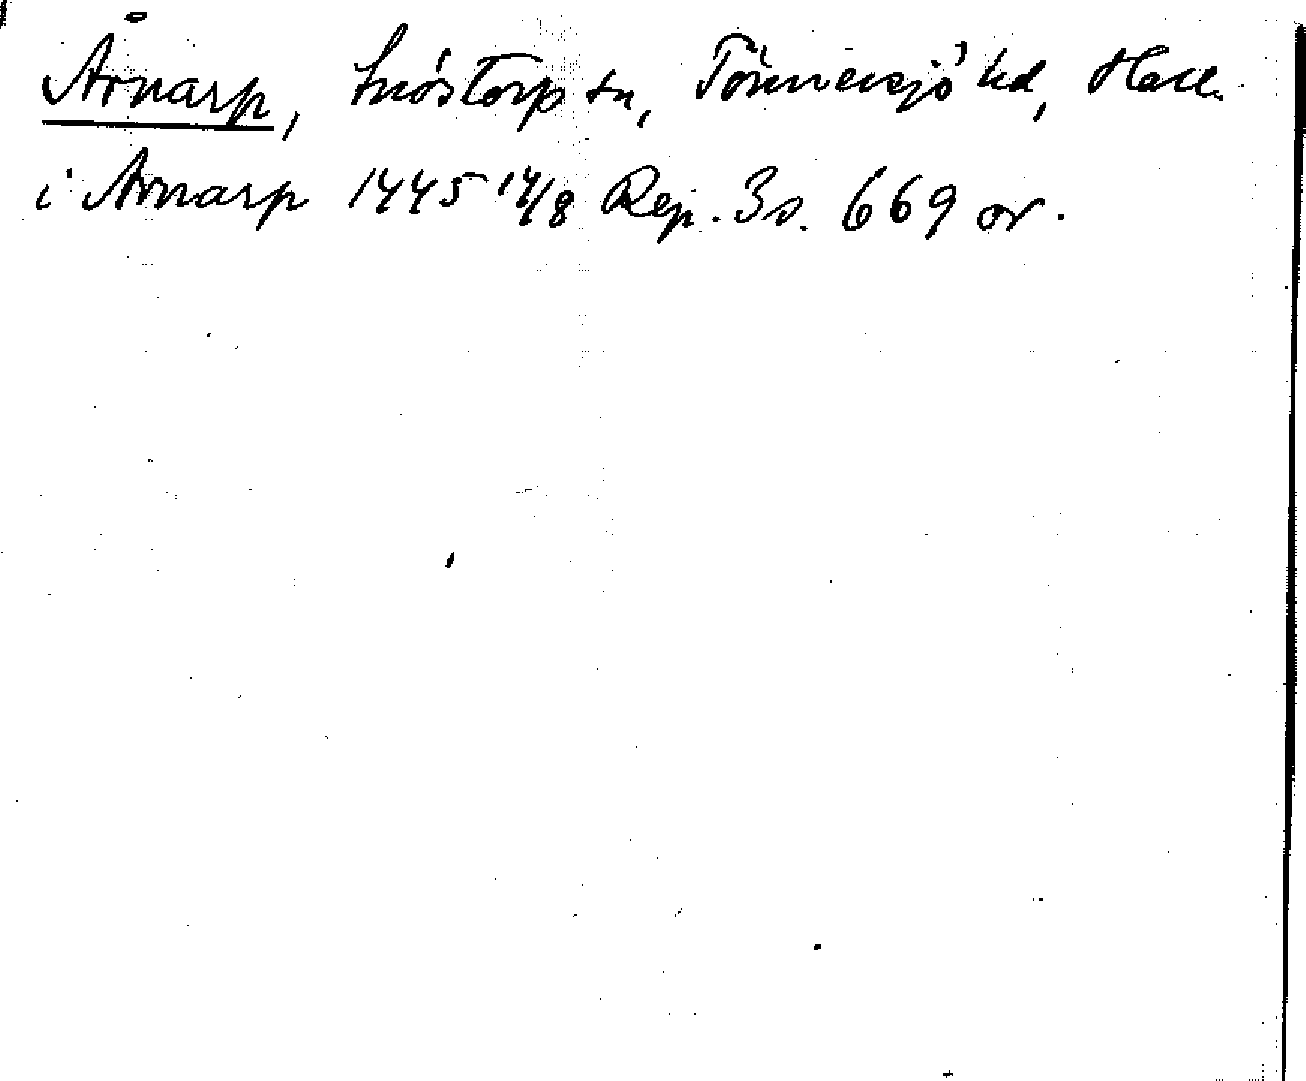 Årnarp, Snöstorp sn, Tönnersjö hd, Hall.
i Arnarp 1445 14/8 Rep. 3 s. 669 or.